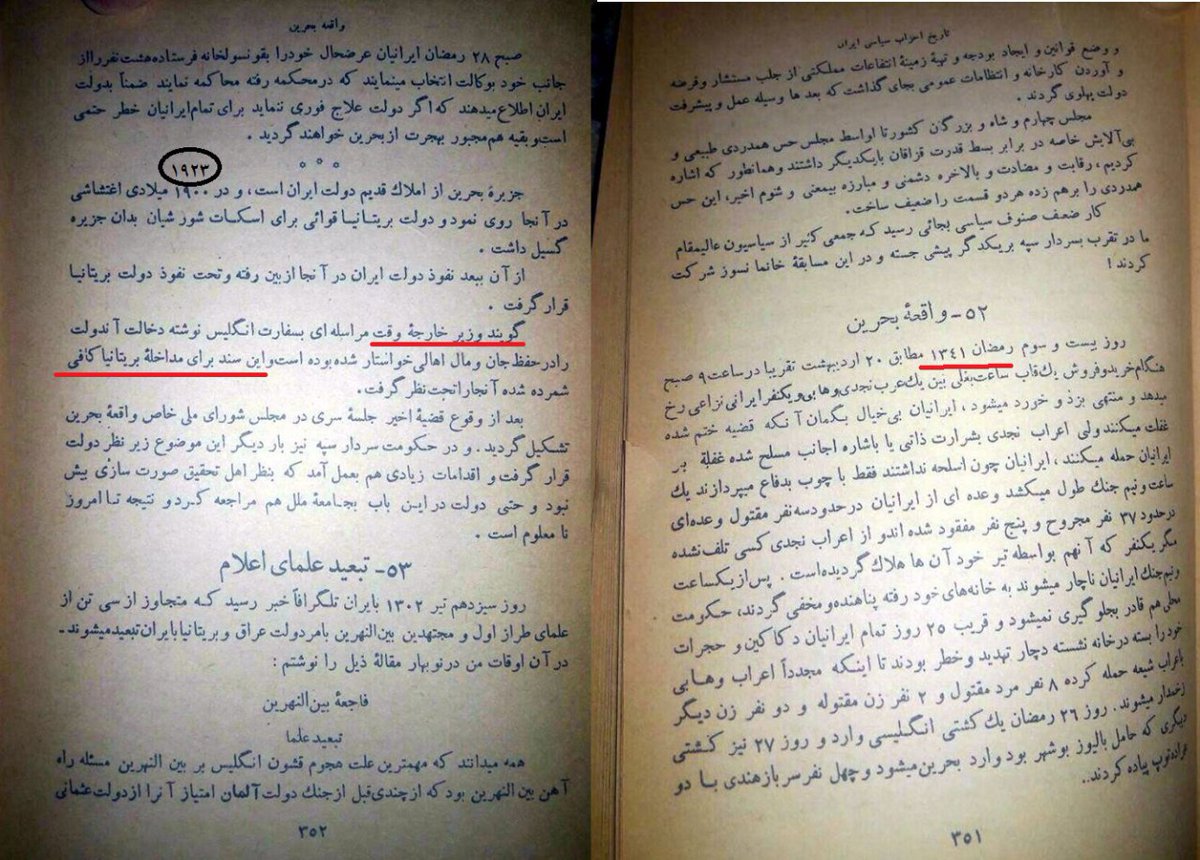 تاریخ احزاب سیاسی ایران
و وضع قوانین و ایجاد بودجه و تهیهٔ زمینهٔ انتفاعات مملکتی از جلب مستشار وقرضه
و آوردن کارخانه و انتظامات عمومی بجای گذاشت که بعد ها وسیله عمل و پیشرفت
دولت پهلوی گردند .
مجلس چهارم و شاه و بزرگان کشور تا اواسط مجلس حس همدردی طبیعی و
بی‌آلایش خاصه در برابر بسط قدرت قزاقان بایکدیگر داشتند وهمانطور که اشاره
کردیم ، رقابت و مضادت و بالاخره دشمنی و مبارزه بیمعنی و شئوم اخیر، این حس
همدردی را برهم زده هردو قسمت را ضعیف ساخت.
کار ضعف صنوف سیاسی بجائی رسید که جمعی کثیر از سیاسیون عالیمقام
ما در تقرب بسردار سپه بریکدگر پیشی جسته و در این مسابقهٔ خانمانسوز شرکت
کردند !
۵۲- واقعهٔ بحرین
روز بیست و سوم رمضان ۱۳۴۱ مطابق ۲۰ اردیبهشت تقریبا درساعت ۹ صبح
هنگام خریدوفروش یك قاب ساعت بغلی بین یك عرب نجدی وهابی ویکنفر ایرانی نزاعی رخ
میدهد و منتهی بزد و خورد میشود ، ایرانیان بی‌خیال بگمان آنکه قضیه ختم شده
غفلت میکنند ولی اعراب نجدی بشرارت ذاتی یا باشاره اجانب مسلح شده غفلةً بر
ایرانیان حمله میکنند ، ایرانیان چون اسلحه نداشتند فقط با چوب بدفاع میپردازند یك
ساعت ونیم جنك طول میکشد وعده ای از ایرانیان درحدودسه نفر مقتول وعده‌ای
درحدود ۳۷ نفر مجروح و پنج نفر مفقود شده اندو از اعراب نجدی کسی تلف نشده
مگر یکنفر که آنهم بواسطه تیر خود آن ها هلاك گردیده است . پس از یکساعت
ونیم جنك ایرانیان ناچار میشوند به خانه‌های خود رفته پناهنده ومخفی گردند، حکومت
محلی هم قادر بجلو گیری نمیشود و قریب ۲۵ روز تمام ایرانیان دکاکین و حجرات
خود را بسته درخانه نشسته دچار تهدید وخطر بودند تا اینکه مجدداً اعراب وهابی
باعراب شیعه حمله کرده ۸ نفر مرد مقتول و ۲ نفر زن مقتوله و دو نفر زن دیگر
زخمدار میشوند. روز ۲۶ رمضان یك کشتی انگلیسی وارد و روز ۲۷ نیز کشتی
دیگری که حامل بالیوز بوشهر بود وارد بحرین میشود و چهل نفر سربازهندی با دو
عراده توپ پیاده کردند..
۳۵۱
واقعه بحرین
صبح ۲۸ رمضان ایرانیان عرضحال خودرا بقونسولخانه فرستاده هشت نفررا از
جانب خود بوکالت انتخاب مینمایند که درمحکمه رفته محاکمه نمایند ضمناً بدولت
ایران اطلاع میدهند که اگر دولت علاج فوری ننماید برای تمام ایرانیان خطر حتمی
است و بقیه هم مجبور بهجرت از بحرین خواهند گردید .
۱۹۲۳
جزیرهٔ بحرین از املاك قدیم دولت ایران است ، و در ۱۹۰۰ میلادی اغتشاشی
در آنجا روی نمود و دولت بریتانیا قوائی برای اسکات شورشیان بدان جزیره
گسیل داشت .
از آن ببعد نفوذ دولت ایران در آنجا ازبین رفته وتحت نفوذ دولت بریتانیا
قرار گرفت .
گویند وزیر خارجهٔ وقت مراسله ای بسفارت انگلیس نوشته دخالت آندولت
رادرحفظ جان و مال اهالی خواستار شده بوده است و این سند برای مداخلهٔ بریتانیا کافی
شمرده شده آنجارا تحت نظر گرفت.
بعد از وقوع قضیهٔ اخیر جلسهٔ سری در مجلس شورای ملی خاص واقعهٔ بحرین
تشکیل گردید . و در حکومت سردار سپه نیز بار دیگر این موضوع زیر نظر دولت
قرار گرفت و اقدامات زیادی هم بعمل آمد که بنظر اهل تحقیق صورت سازی بیش
نبود و حتی دولت در این باب بجامعهٔ ملل هم مراجعه کرد و نتیجه تا امروز
نا معلوم است .
۵۳- تبعید علمای اعلام
روز سیزدهم تیر ۱۳۰۲ بایران تلگرافاً خبر رسید که متجاوز از سی تن از
علمای طراز اول و مجتهدین بین‌النهرین بامر دولت عراق و بریتانیا بایران تبعید میشوند-
در آن اوقات من درنوبهار مقالهٔ ذیل را نوشتم :
فاجعهٔ بین‌النهرین
تبعید علما
همه میدانند که مهمترین علت هجوم قشون انگلیس بر بین النهرین مسئله راه
آهن بین النهرین بود که از چندی قبل از جنك دولت آلمان امتیاز آنرا ازدولت عثمانی
۳۵۲